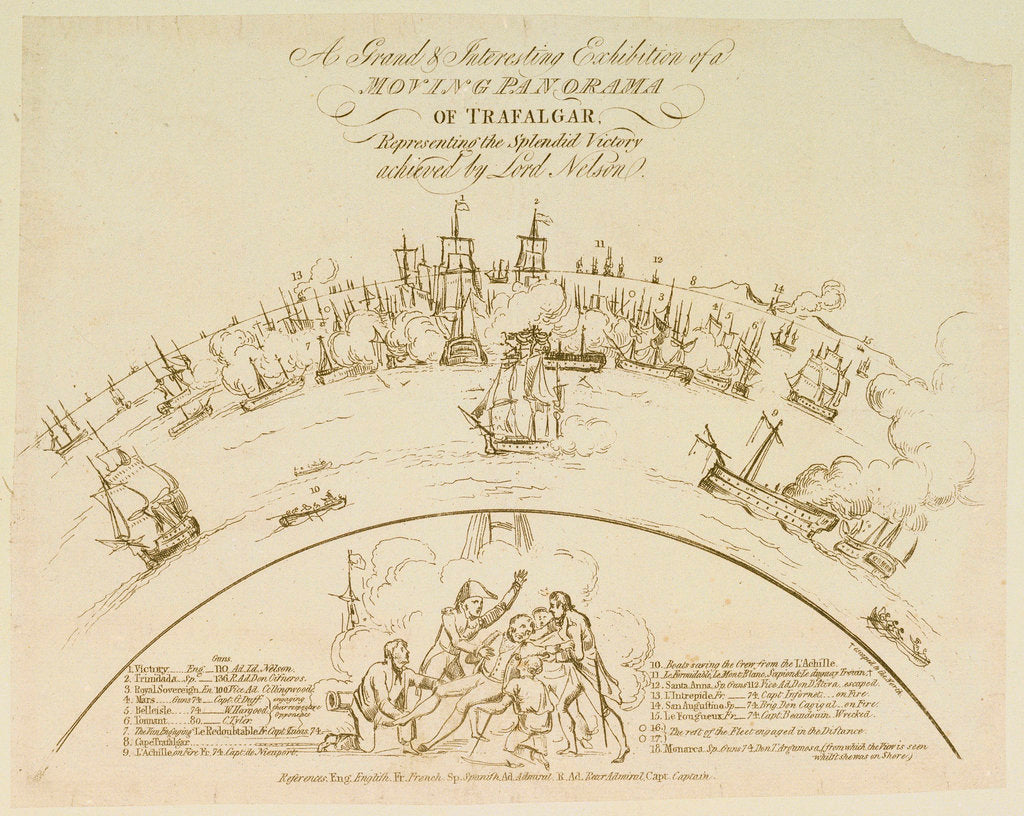 A Grand & Interesting Exhibition of a
MOVING PANORAMA
OF TRAFALGAR,
Representing the Splendid Victory
achieved by Lord Nelson.
1
2
11
12
13
8
14
3
4
5
6
7
15
9
10
Guns.
1. Victory Eng 110 Ad. Ld. Nelson.
2. Trinidada Sp. 136 R. Ad. Don Cisneros.
3. Royal Sovereign. En. 100 Vice Ad. Collingwood
4. Mars Guns 74 Capt. G. Duff
5. Belleisle 74 W. Hargood
engaging their respective Opponents
6. Tonnant 80 C. Tyler
7. The Tem Engaging Le Redoubtable Fr. Capt. 74
8. Cape Trafalgar
9. L'Achille on Fire Fr. 74 Capt. de Nieuport
10. Boats saving the Crew from the L'Achille.
11. Le Formidable, Le Mont Blanc, Scipion &
12. Santa Anna, Sp. Guns 112 Vice Ad. Don escaped.
13. L'Intrepide Fr. 74 Capt. Infornet on Fire.
14. San Augustino Sp. 74 Brig. Don Cagigal on Fire.
15. Le Fougueux Fr. 74 Capt. Beaudouin Wrecked.
16
17
The rest of the Fleet engaged in the Distance
18. Monarca, Sp. Guns 74 Don T. Argumosa, (from which the View is seen
whilst she was on Shore)
References. Eng. English. Fr. French. Sp. Spanish. Ad. Admiral. R. Ad. Rear Admiral, Capt. Captain.